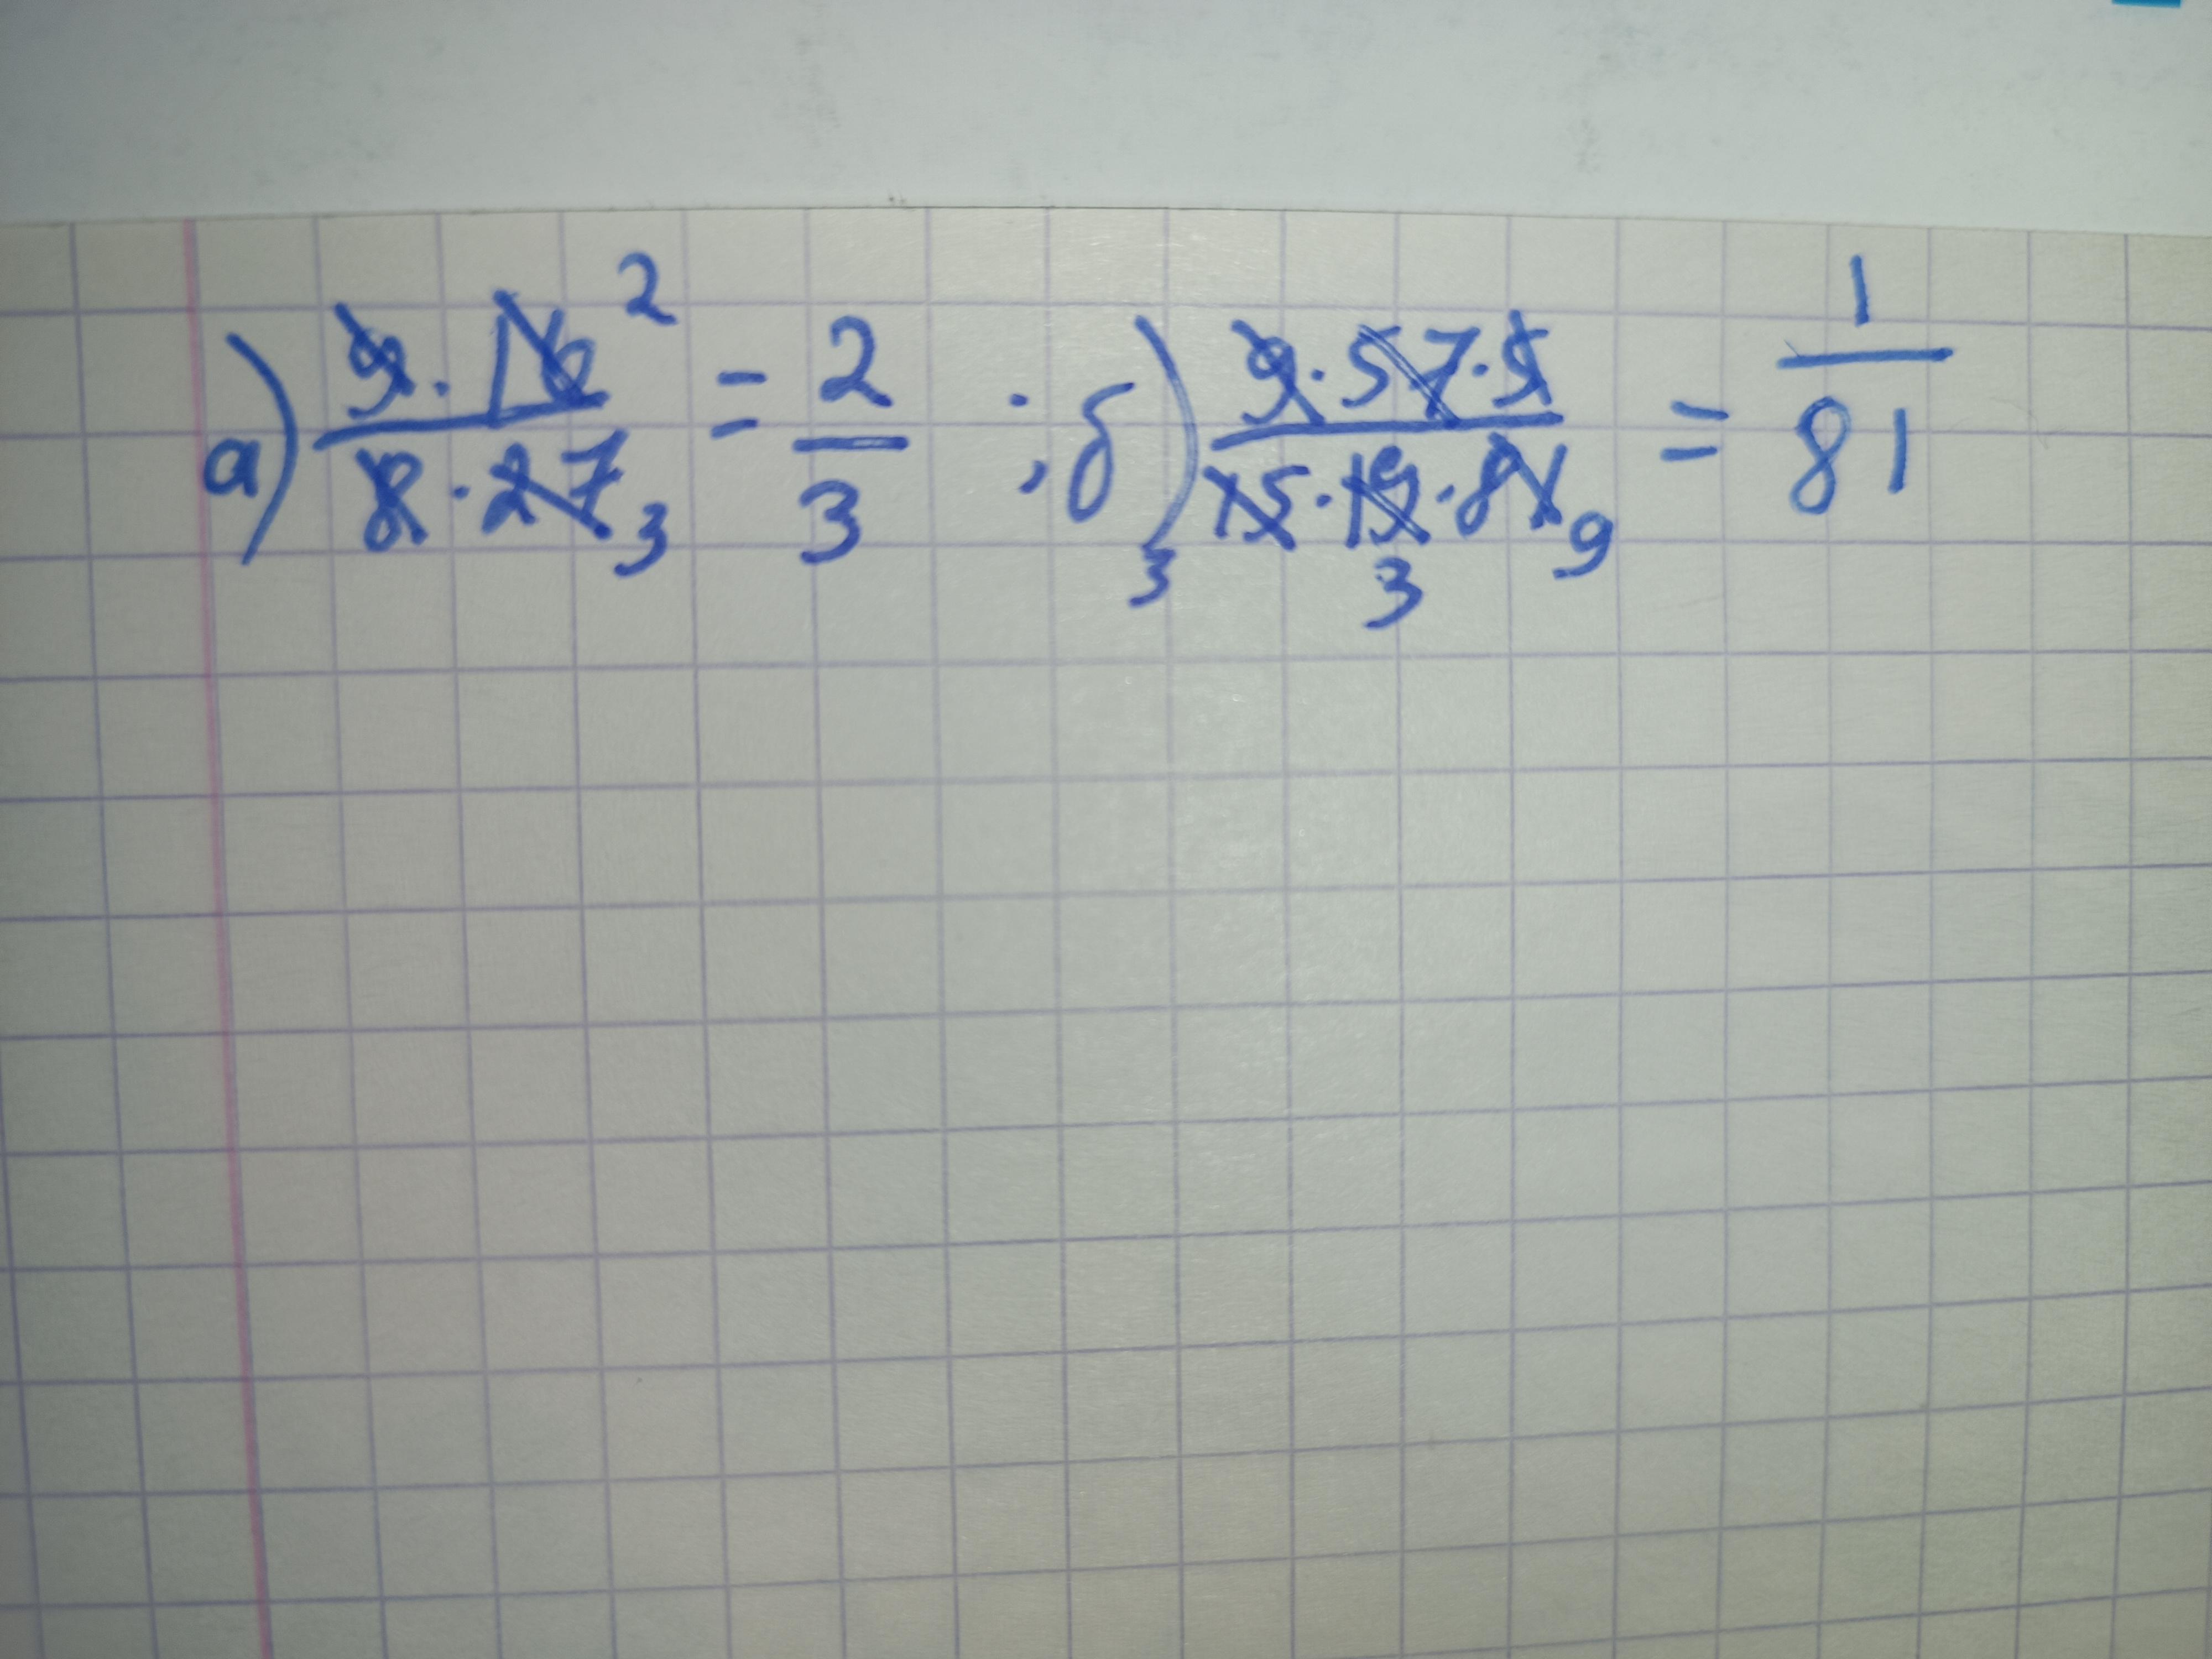 а) 9 · 16 2 / 8 · 27 3 = 2/3 ; б) 9 · 57 · 5 / 3 15 · 19 3 · 81 9 = 1/81